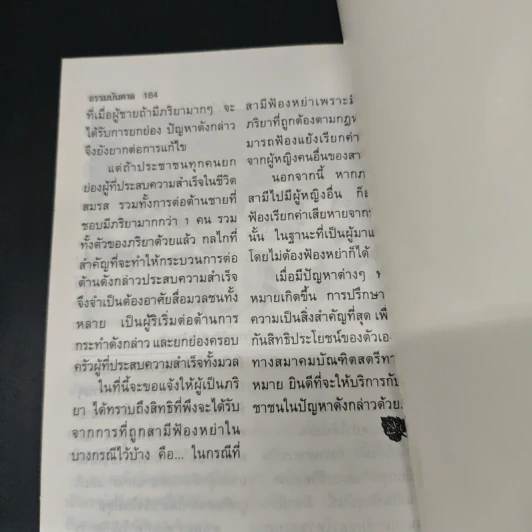 ธรรมบันดาล 164
ที่เมื่อผู้ชายถ้ามีภริยามากๆ จะ
ได้รับการยกย่อง ปัญหาดังกล่าว
จึงยังยากต่อการแก้ไข
แต่ถ้าประชาชนทุกคนยก
ย่องผู้ที่ประสบความสำเร็จในชีวิต
สมรส รวมทั้งการต่อต้านชายที่
ชอบมีภริยามากกว่า 1 คน รวม
ทั้งตัวของภริยาด้วยแล้ว กลไกที่
สำคัญที่จะทำให้กระบวนการต่อ
ต้านดังกล่าวประสบความสำเร็จ
จึงจำเป็นต้องอาศัยสื่อมวลชนทั้ง
หลาย เป็นผู้ริเริ่มต่อต้านการ
กระทำดังกล่าว และยกย่องครอบ
ครัวผู้ที่ประสบความสำเร็จทั้งมวล
ในที่นี้จะขอแจ้งให้ผู้เป็นภริ
ยา ได้ทราบถึงสิทธิที่พึงจะได้รับ
จากการที่ถูกสามีฟ้องหย่าใน
บางกรณีไว้บ้าง คือ... ในกรณีที่
สามีฟ้องหย่าเพราะ
ภริยาที่ถูกต้องตามกฎห
มารถฟ้องแย้งเรียกค่า
จากผู้หญิงคนอื่นของสา
นอกจากนี้ หากภ
สามีไปมีผู้หญิงอื่น ก็
ฟ้องเรียกค่าเสียหายจาก
นั้น ในฐานะที่เป็นผู้มาแ
โดยไม่ต้องฟ้องหย่าก็ได้
เมื่อมีปัญหาต่างๆ
หมายเกิดขึ้น การปรึกษา
ความเป็นสิ่งสำคัญที่สุด เพื่
กันสิทธิประโยชน์ของตัวเอ
ทางสมาคมบัณฑิตสตรีทา
หมาย ยินดีที่จะให้บริการกับ
ชาชนในปัญหาดังกล่าวด้วย.